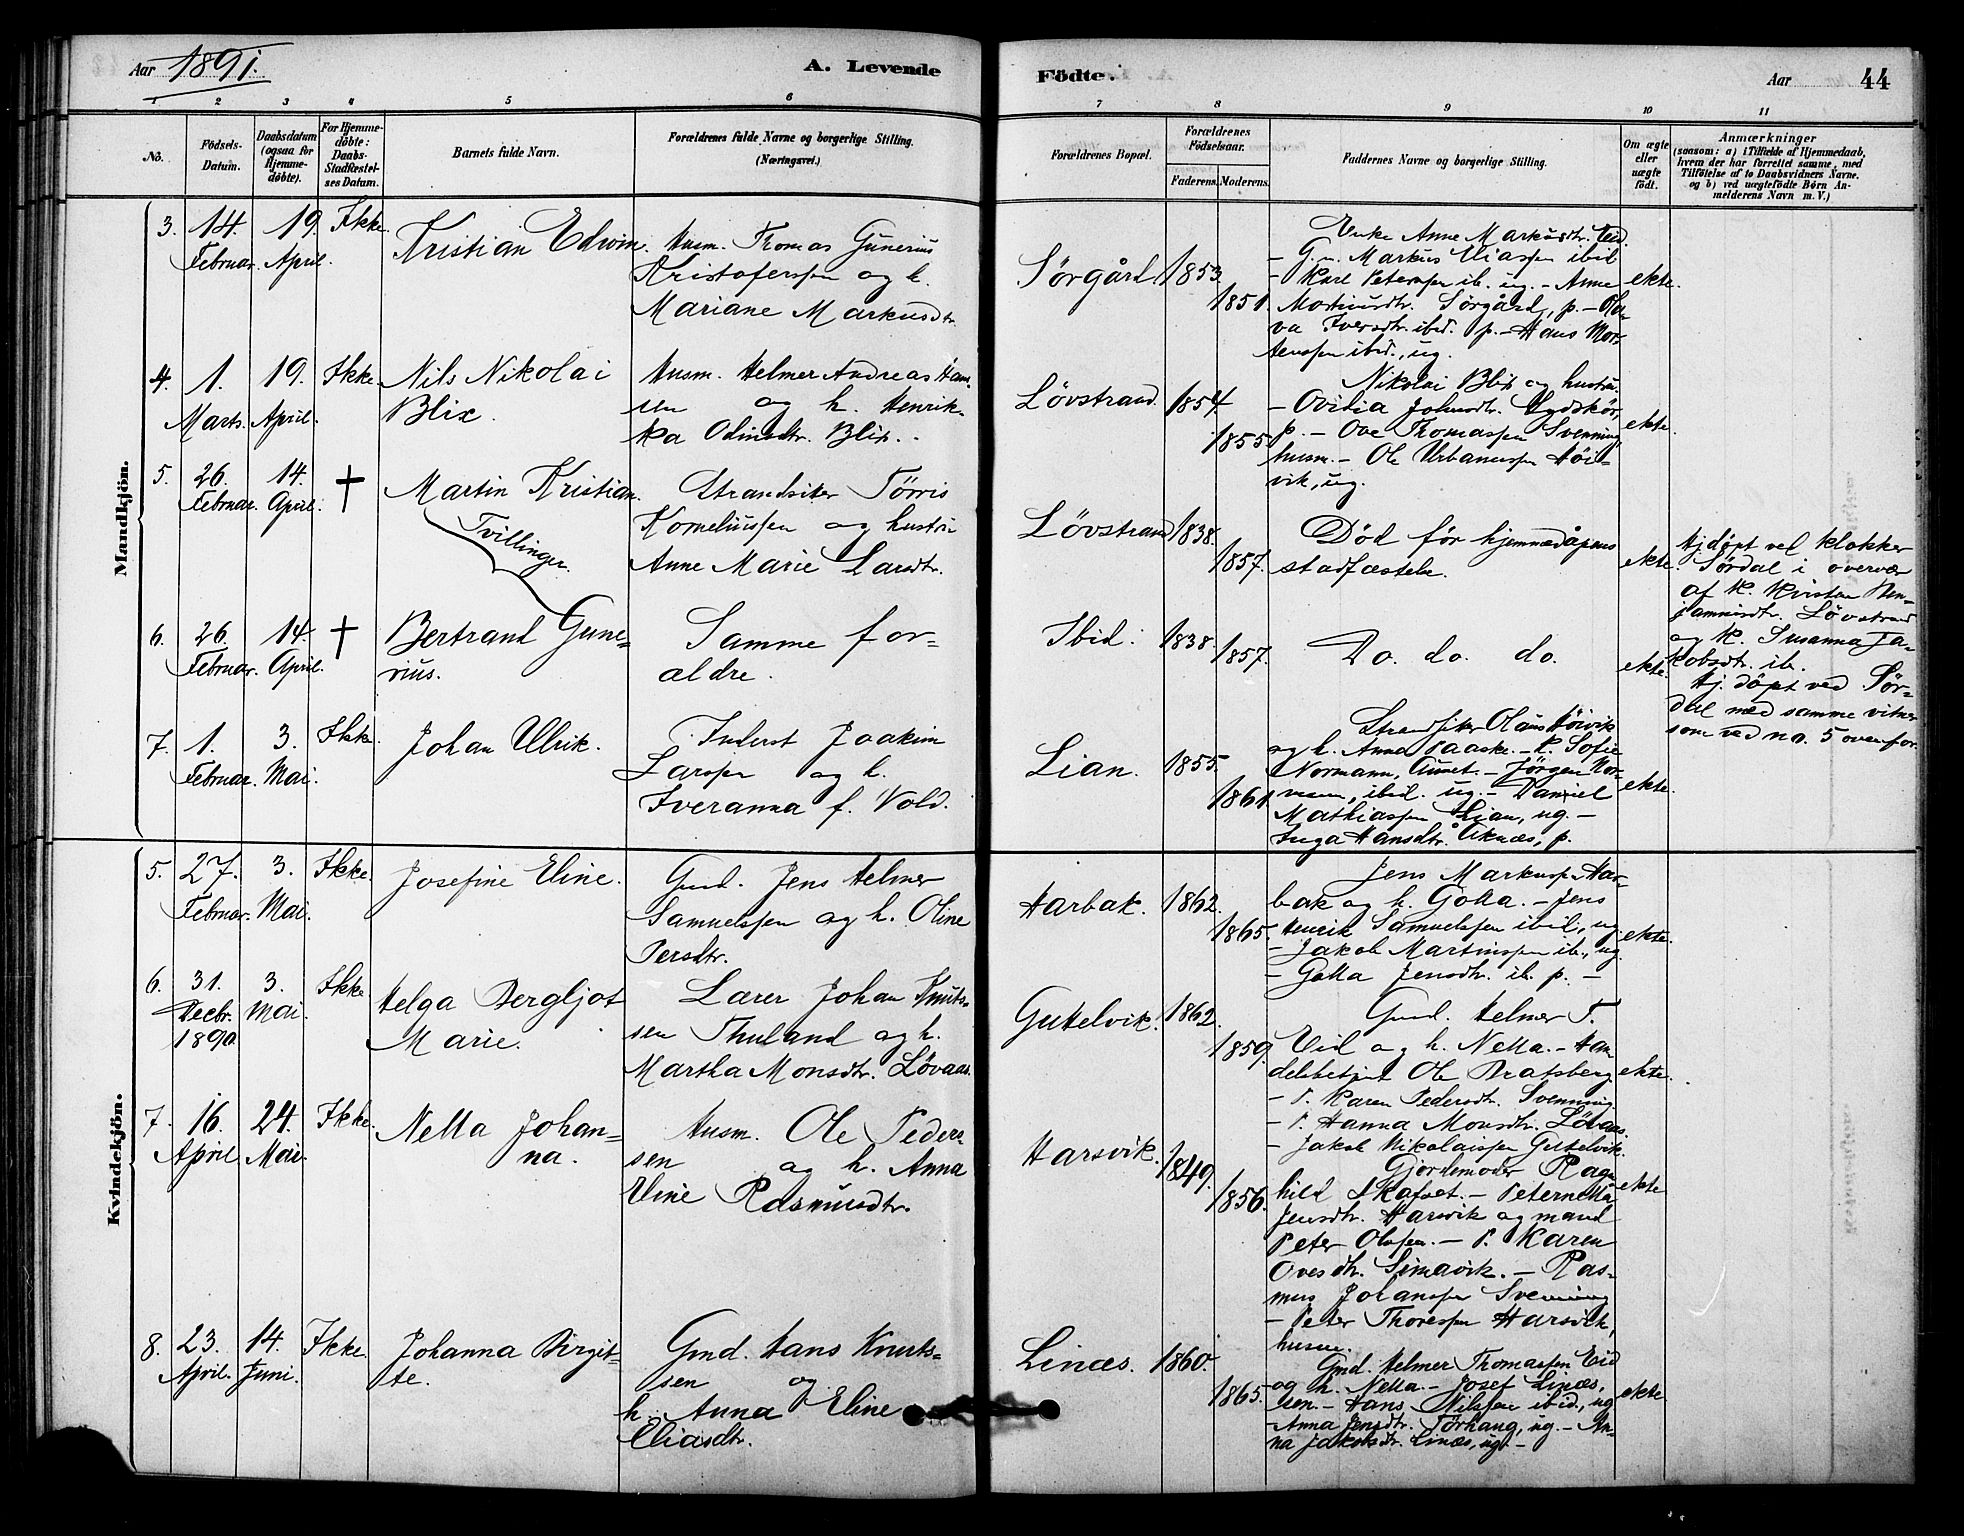 Aar 1891.
A. Levende
Födte.
Aar
44
1 2 3 4 5 6
7 8 9 10 11
No.
Födsels-
Datum.
Daabsdatum
(ogsaa for
Hjemme-
döbte).
For Hjemme-
döbte:
Daabs-
Stadfæstel-
ses Datum.
Barnets fulde Navn.
Forældrenes fulde Navne og borgerlige Stilling.
(Næringsvei.)
Forældrenes Bopæl.
Forældrenes
Födselsaar.
Faderens. Moderens.
Faddernes Navne og borgerlige Stilling.
Om ægte
eller
uægte
födt.
Anmærkninger
(saasom: a) i Tilfælde af Hjemmedaab,
hvem der har forrettet samme, med
Tilföielse af to Daabsvidners Navne.
og b) ved uægtefödte Børn An-
melderens Navn m. V.)
Mandkjön.
3. 14. Februar. 19. April. Ikke.
Kristian Edwin.
Husm. Thomas Gunerius
Kristofersen og h.
Mariane Markusdtr.
Sörgård. 1853. 1851.
Enke Anne Markusdtr. Eid.
- G.m. Markus Eliassen ibid
- Karl Petersen ib. ug. - Anne
Martinusdtr. Sörgård, p. - Ola-
va Iversdtr. ibid. p. - Hans Mor-
tenssen ibid., ug.
ekte.
4. 1. Marts. 19. April. Ikke.
Nils Nikolai
Blix.
Husm. Helmer Andreas Han-
sen og h. Henrik-
ka Odinsdtr. Blix.
Lövstrand. 1854. 1855.
Nikolai Blix og hustru
- Ovidia Johnsdtr.
p. - Ove Thomassen Svenning,
husm. - Ole Urbanussen Höi-
vik, ug.
ekte.
5. 26. Februar. 14. April. †
Martin Kristian.
Tvillinger.
Strandsitter Törris
Korneliussen og hustru
Anne Marie Larsdtr.
Lövstrand 1838. 1857.
Död för hjemmedåpens
stadfæstelse.
ekte.
Hj.döpt ved klokker
Sördal i overvær
af K. Kirsten Ben-
jaminsdtr. Lövstrand
og K. Susanna Ja-
kobsdtr. ib.
6. 26. Februar. 14. April. †
Bertrand Gune-
rius.
Samme for-
aldre.
Ibid. 1838. 1857.
Do. do. do.
ekte.
Hj. döpt ved Sör-
dal med samme vitner
som ved no. 5 ovenfor.
7. 1. Februar. 3. Mai. Ikke.
Johan Ulrik.
Inderst Joakim
Larssen og h.
Iveranna f. Vold.
Lian. 1855. 1861.
Strandsitter Olaus Höivik
og h. Anna Paaske. - K. Sofie
Normann, Aunet. - Jörgen Nor-
mann, ibid. ug. - Daniel
Mathiassen Lian, ug. -
Inga Hansdtr. Åknæs, p.
ekte.
Kvindekjön.
5. 27. Februar. 3. Mai. Ikke.
Josefine Eline.
Gmd. Jens Helmer
Samuelssen og h. Oline
Persdtr.
Harbak. 1862. 1865.
Jens Markuss. Har-
bak og h. Golla. - Jens
Henrik Samuelssen ibid, ug.
- Jakob Martinssen ib., ug.
- Golla Jensdtr. ib. p. -
ekte.
6. 31. Decbr. 1890. 3. Mai. Ikke
Helga Bergljot
Marie.
Lærer Johan Knuts-
sen Thuland og h.
Martha Monsdtr. Lövaas.
Gutelvik. 1862. 1859.
Gmd. Helmer T.
Eid og h. Nella. - Han-
delsbetjent Ole Bratsberg
- P. Karen Pedersdtr. Svenning
- P. Hanna Monsdtr. Lövaas.
- Jakob Nikolaissen Gutelvik.
ekte.
7. 16. April. 24. Mai. Ikke.
Nella Johan-
na.
Husm. Ole Peder-
sen og h. Anna
Eline Rasmusdtr.
Harsvik. 1849. 1856.
Gjordemoder Ragn
hild Skafset. - Peternella
Jensdtr. Harsvik og mand
Peter Olssen. - P. Karen
Ovesdtr. Simavik. - Ras-
mus Johanssen Svenning
- Peter Thoressen Harsvik,
husm.
ekte
8. 23. April. 14. Juni. Ikke.
Johanna Birgit-
te.
Gmd. Hans Knuts-
sen og
h. Anna Eline
Eliasdtr.
Linæs. 1860. 1865.
Gmd. Helmer Thomassen Eid
og h. Nella. - Josef Linæs,
- Hans Nilssen ibid., ug
- Anna Jensdtr. Törhaug, ug. - An-
na Jakobsdtr. Linæs, ug. -
ekte